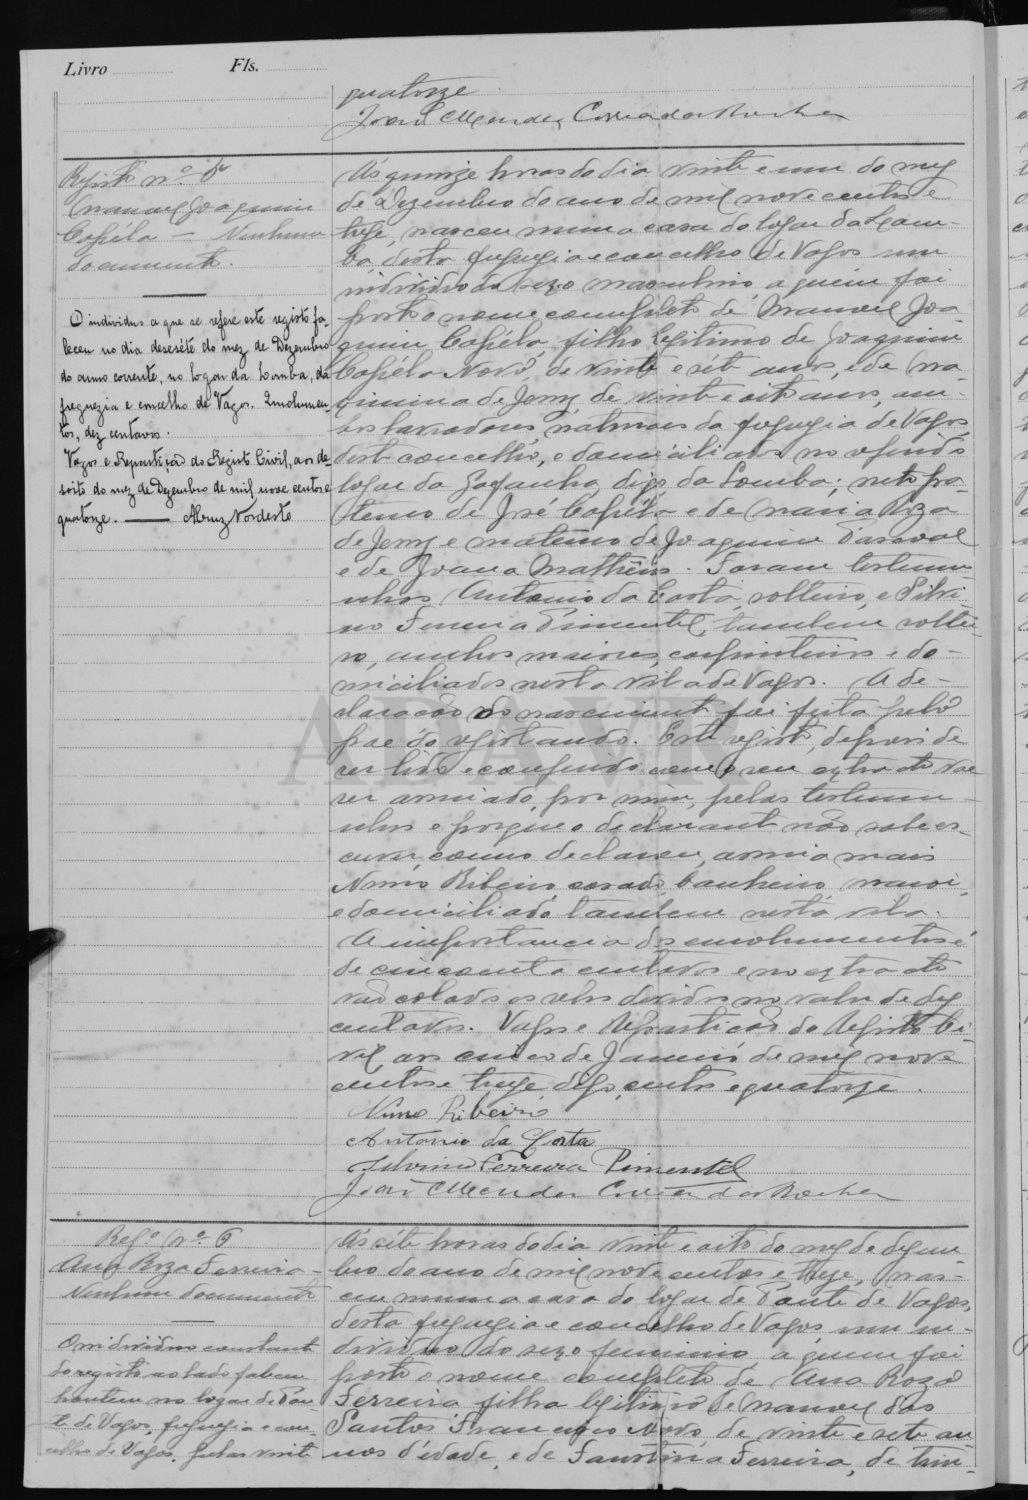 Livro Fls.
quatorze
João Mendes Correia da Rocha
Registo n.º 5
Manoel Joaquim
Capéla — Nenhum
documento.
O individuo a que se refere este registo fa-
leceu no dia deseséte do mez de Dezembro
do anno corrente, no logar da Lomba, da
freguezia e concelho de Vagos. Emolumen-
tos, dez centavos.
Vagos e Repartição do Registo Civil, aos de-
soito do mez de Dezembro de mil nove centos e
quatorze. — Nordesto
Ás quinze horas do dia vinte e um do mez
de Dezembro do ano de mil nove centos e
treze, nasceu numa casa do logar da Lom-
ba, desta freguezia e concelho de Vagos um
individuo do sexo masculino, a quem foi
posto o nome completo de Manoel Joa-
quim Capéla, filho legitimo de Joaquim
Capéla Novo, de vinte e séte anos, e de Ma-
de Jesus, de vinte e oito anos, am-
bos lavradores, naturaes da freguezia de Vagos
deste concelho, e domiciliados no referido
logar da Gafanha, digo da Lomba; neto pa-
terno de José Capéla e de Maria Roza
de Jesus e materno de Joaquim
e de Joana Matheus. Foram testemu-
nhas Antonio da Costa, solteiro, e Silvi-
no Ferreira Pimentel, tambem soltei-
ro, ambos maiores, carpinteiros e do-
miciliados nesta vila de Vagos. A de-
claração do nascimento foi feita pelo
pae do registando. Este registo, depois de
ser lido e conferido com o seu extrato vae
ser assinado, por mim, pelas testemu-
nhas e porque o declarante não sabe es-
crever, como declarou, assina mais
Nuno Ribeiro, casado, banheiro, maior,
e domiciliado tambem nesta vila.
A importancia dos emolumentos é
de cincoenta centavos e no extrato
vão colados os selos devidos no valor de dez
centavos. Vagos e Repartição do Registo Ci-
vil aos cinco de Janeiro de mil nove
centos e treze, digo, centos e quatorze.
Nuno Ribeiro
Antonio da Costa
Silvino Ferreira Pimentel
João Mendes Correia da Rocha
Reg.º n.º 6
Ana Roza Ferreira —
Nenhum documento
O individuo constante
do registo ao lado faleceu
hontem no logar de Pon-
te de Vagos, freguezia e con-
celho de Vagos, pelas vinte
Ás séte horas do dia vinte e oito do mez de dezem-
bro do ano de mil nove centos e treze, nas-
ceu numa casa do logar de Ponte de Vagos,
desta freguezia e concelho de Vagos, um in-
dividuo do sexo feminino, a quem foi
posto o nome completo de Ana Roza
Ferreira filha legitima de Manoel dos
Santos Francisco Novo, de vinte e sete an-
nos d'idade, e de Faustina Ferreira, de trin-